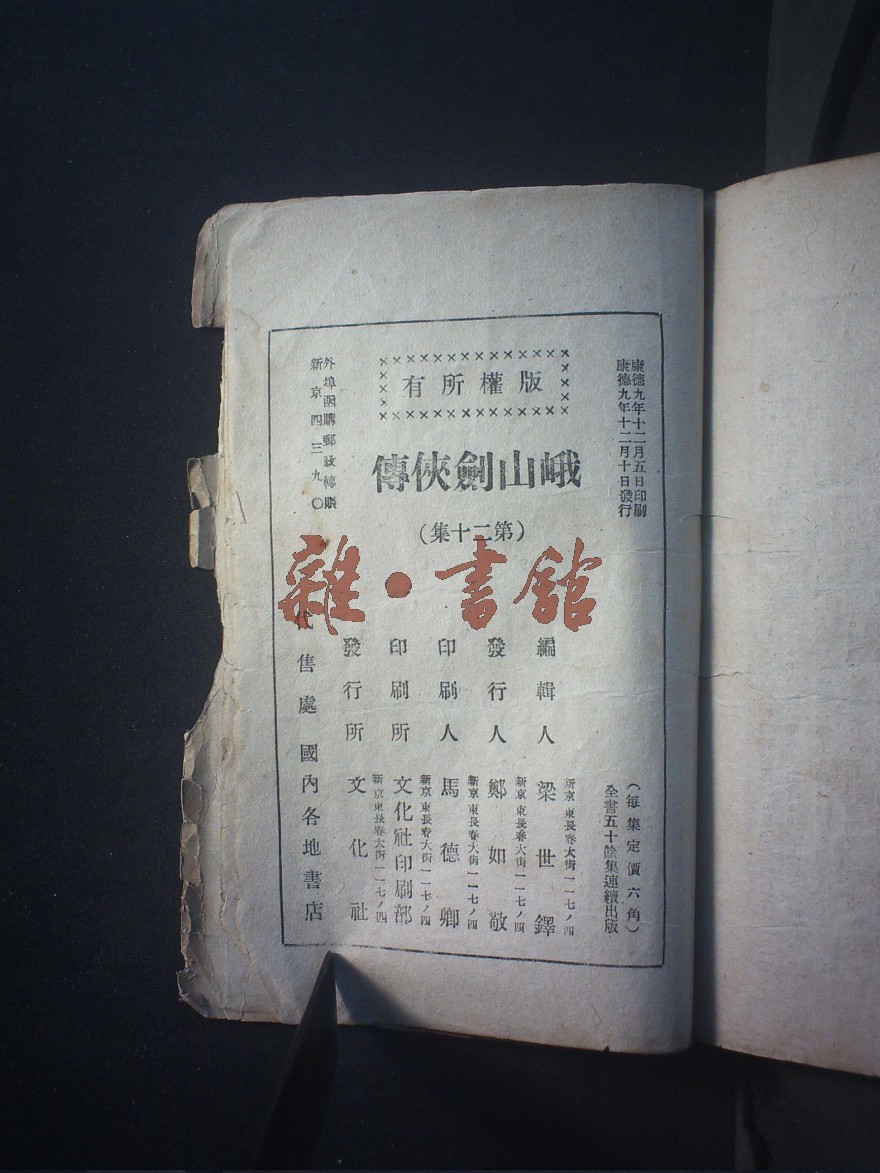 康德九年十二月五日印刷
康德九年十二月十日發行
(每集定價六角)
全書五十餘集連續出版
版權所有
峨山劍俠傳
(第二十集)
編輯人 梁世鐸
新京東長春大街一一七ノ四
發行人 鄭如敬
新京東長春大街一一七ノ四
印刷人 馬德卿
新京東長春大街一一七ノ四
印刷所 文化社印刷部
新京東長春大街一一七ノ四
發行所 文化社
新京東長春大街一一七ノ四
外埠函購郵政轉賬
新京四三九〇
代售處 國內各地書店
雜·書館